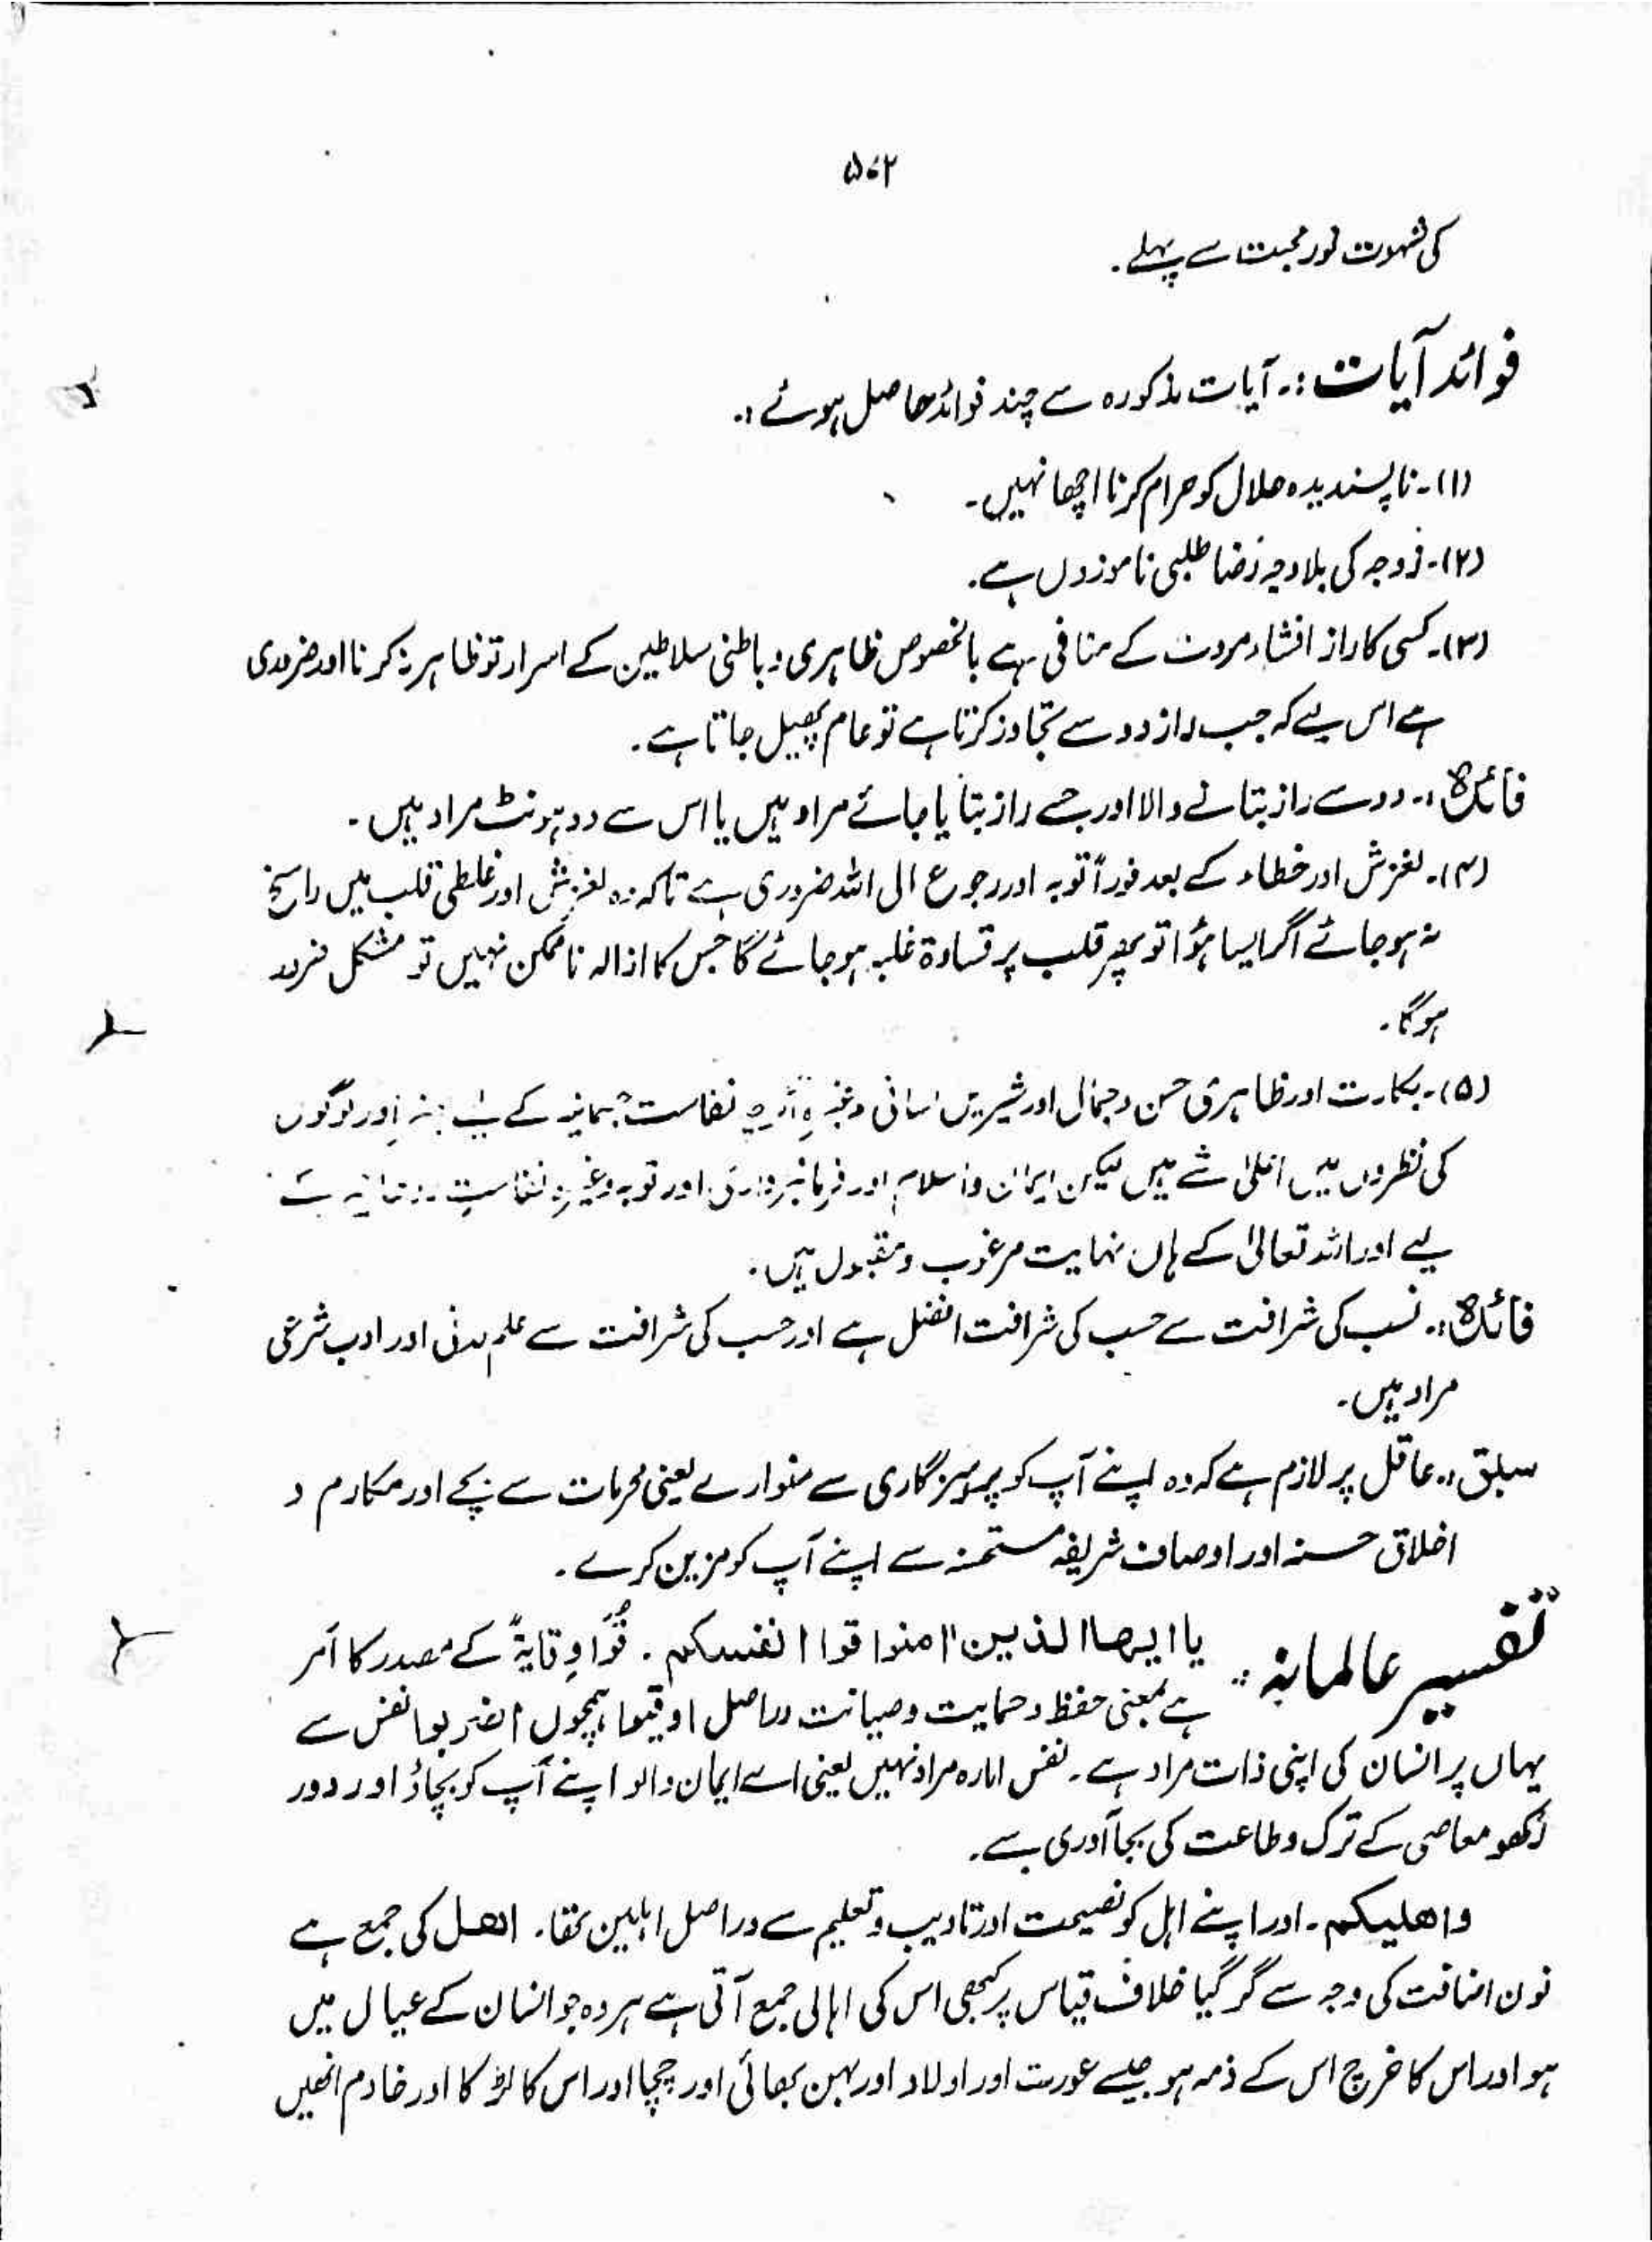 ۵۷۲
کی شہوت اور محبت سے پہلے۔
فوائد آیات:۔ آیات مذکورہ سے چند فوائد حاصل ہوئے:۔
(۱)۔ ناپسندیدہ حلال کو حرام کرنا اچھا نہیں۔
(۲)۔ زوجہ کی بلاوجہ رضا طلبی ناموزوں ہے۔
(۳)۔ کسی کا راز افشاء مروت کے منافی ہے بالخصوص ظاہری و باطنی سلاطین کے اسرار تو ظاہر نہ کرنا اور ضروری
ہے اس لیے کہ جب راز دو سے تجاوز کرتا ہے تو عام پھیل جاتا ہے۔
فائدہ:۔ دو سے راز بتانے والا اور جسے راز بتایا جائے مراد ہیں یا اس سے دو ہونٹ مراد ہیں۔
(۴)۔ لغزش اور خطاء کے بعد فوراً توبہ اور رجوع الی اللہ ضروری ہے تاکہ وہ لغزش اور غلطی قلب میں راسخ
نہ ہو جائے اگر ایسا ہؤا تو پھر قلب پر قساوۃ غلبہ ہو جائے گا جس کا ازالہ ناممکن نہیں تو مشکل ضرور
ہوگا۔
(۵)۔ بکارت اور ظاہری حسن و جمال اور شیریں لسانی وغیرہ نفاست جسمانیہ کے لیے اور لوگوں
کی نظروں میں اعلیٰ شے ہیں لیکن ایمان و اسلام اور فرمانبرداری اور توبہ وغیرہ نفاست روحانیہ کے
لیے اور اللہ تعالیٰ کے ہاں نہایت مرغوب و مقبول ہیں۔
فائدہ:۔ نسب کی شرافت سے حسب کی شرافت افضل ہے اور حسب کی شرافت سے علم لدنی اور ادب شرعی
مراد ہیں۔
سبق:۔ عاقل پر لازم ہے کہ وہ اپنے آپ کو پرہیزگاری سے سنوارے یعنی محرمات سے بچے اور مکارم و
اخلاق حسنہ اور اوصاف شریفہ مستحسنہ سے اپنے آپ کو مزین کرے۔
تفسیر عالمانہ:۔ یا ایھا الذین اٰمنوا قوا انفسکم۔ قُوْا وِقایۃً کے مصدر کا امر
ہے بمعنی حفظ و حمایت و صیانت دراصل اوقیوا ہمچوں اضربوا نفس سے
یہاں پر انسان کی اپنی ذات مراد ہے۔ نفس امارہ مراد نہیں یعنی اے ایمان والو اپنے آپ کو بچاؤ اور دور
رکھو معاصی کے ترک و طاعت کی بجا آوری سے۔
واھلیکم۔ اور اپنے اہل کو نصیحت اور تادیب و تعلیم سے دراصل اہلین تھا۔ اھل کی جمع ہے
نون اضافت کی وجہ سے گر گیا خلاف قیاس پر کبھی اس کی اہالی جمع آتی ہے ہر وہ جو انسان کے عیال میں
ہو اور اس کا خرچ اس کے ذمہ ہو جیسے عورت اور اولاد اور بہن بھائی اور چچا اور اس کا لڑکا اور خادم انھیں